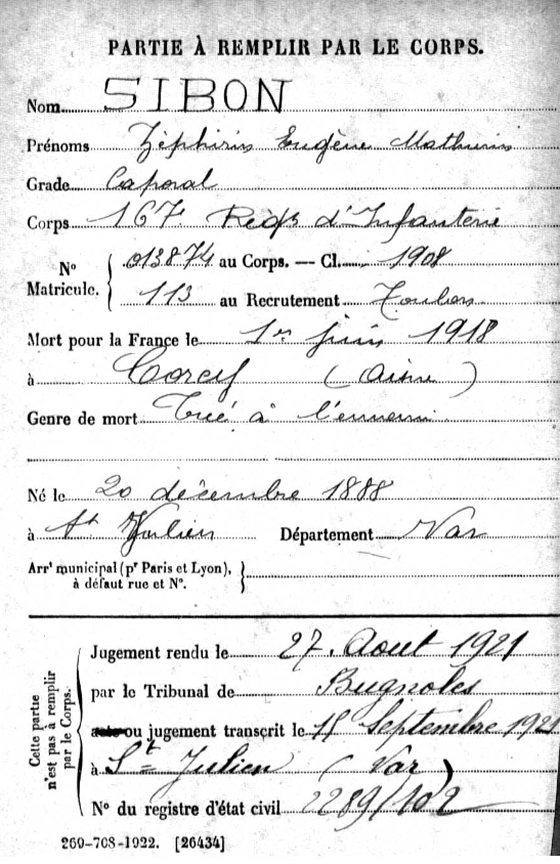 PARTIE À REMPLIR PAR LE CORPS.
Nom SIBON
Prénoms Zéphirin Eugène Mathurin
Grade Caporal
Corps 167e Regt d'Infanterie
No Matricule. { 013874 au Corps. — Cl. 1908
113 au Recrutement Toulon
Mort pour la France le 1er juin 1918
à Corcy (Aisne)
Genre de mort Tué à l'ennemi
Né le 20 décembre 1888
à St Julien Département Var
Arrt municipal (pr Paris et Lyon),
à défaut rue et No. }
Cette partie n'est pas à remplir par le Corps.
Jugement rendu le 27. Aout 1921
par le Tribunal de Brignoles
acte ou jugement transcrit le 15 Septembre 1921
à St Julien (Var)
No du registre d'état civil 2289/102
269-708-1922. [26434]